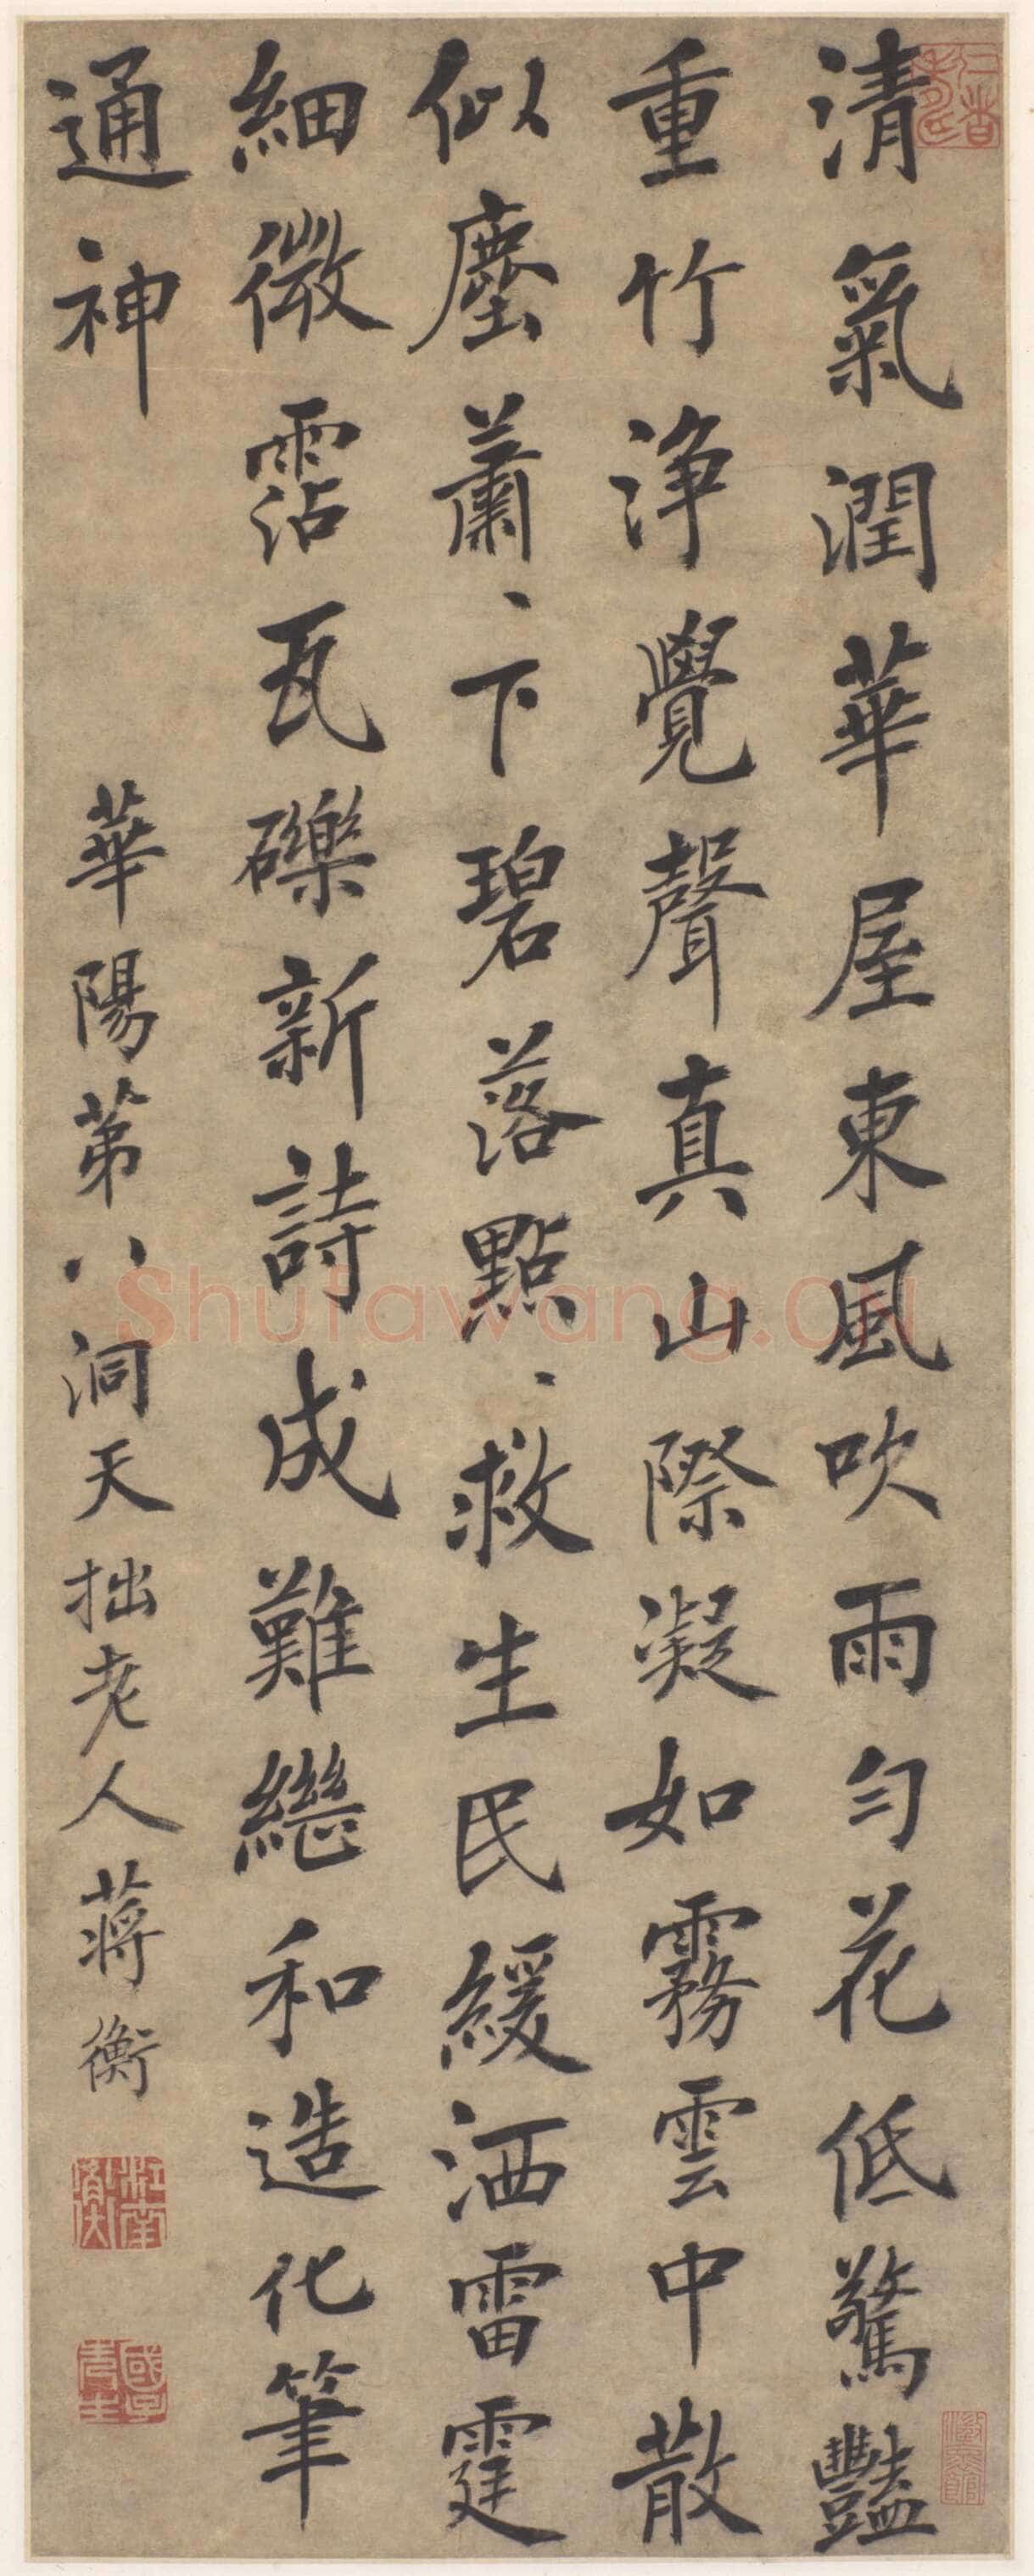 清氣潤華屋東風吹雨勻花低驚豔
重竹淨覺聲真山際凝如霧雲中散
似塵蕭、下碧落點、救生民緩洒雷霆
細微霑瓦礫新詩成難繼和造化筆
通神
華陽第八洞天拙老人蔣衡
Shufawang.cn